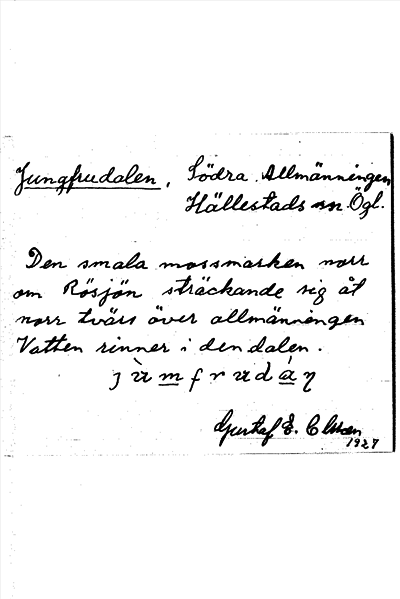 Jungfrudalen, Södra Allmänningen
Hällestads sn. Ögl.
Den smala mossmarken norr
om Rösjön sträckande sig åt
norr tvärs över allmänningen
Vatten rinner i den dalen.
jùmfrudáη
Gustaf E. Olsson
1927